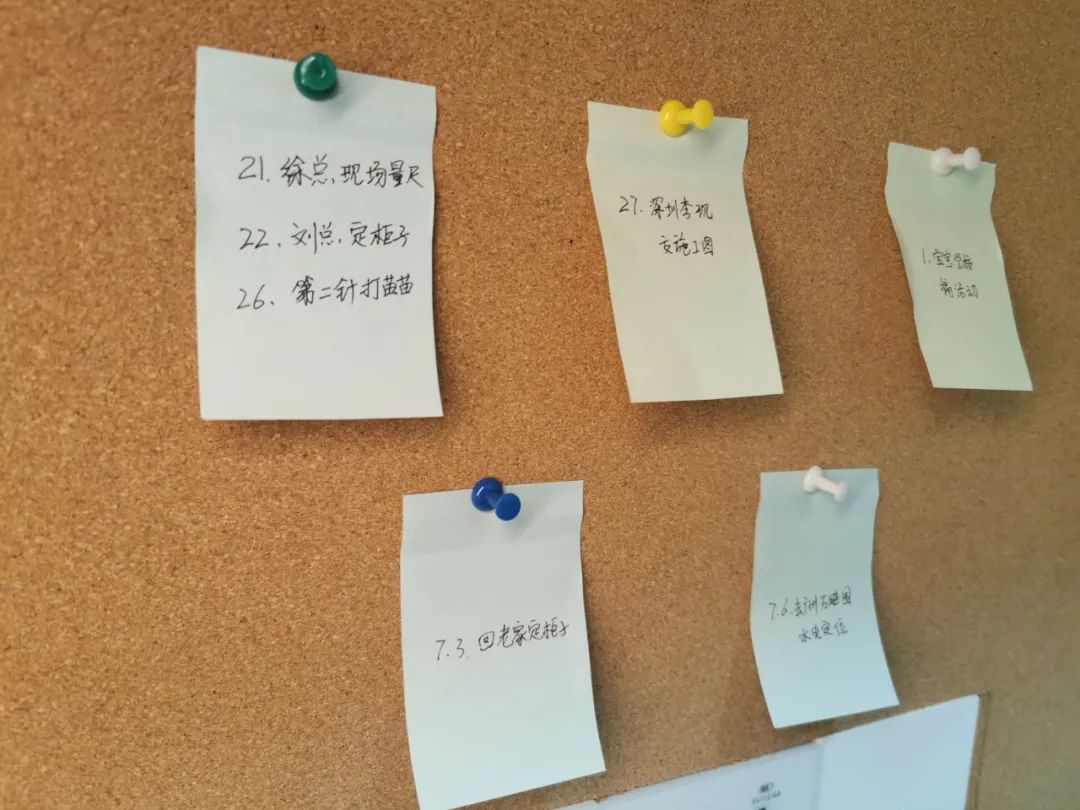 21. 徐总,现场量尺
22. 刘总,定柜子
26. 第二针打苗苗
27. 深圳李
交施工图
1. 宝宝学校
搞活动
7.3. 回老家定柜子
7.6. 去广州
水电定位